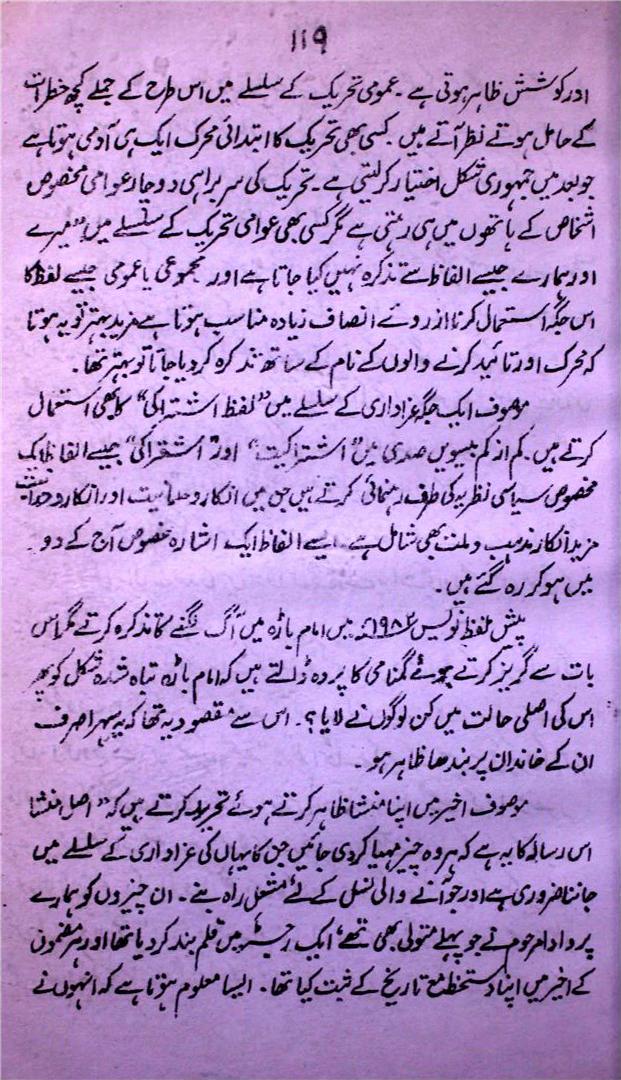 ۱۱۹
اور کوشش ظاہر ہوتی ہے۔ عمومی تحریک کے سلسلے میں اس طرح کے جملے کچھ خطرات
کے حامل ہوتے نظر آتے ہیں۔ کسی بھی تحریک کا ابتدائی محرک ایک ہی آدمی ہوتا ہے
جو بعد میں جمہوری شکل اختیار کر لیتی ہے۔ تحریک کی سربراہی دو چار عوامی مخصوص
اشخاص کے ہاتھوں میں ہی رہتی ہے مگر کسی بھی عوامی تحریک کے سلسلے میں "میرے
اور ہمارے جیسے الفاظ سے تذکرہ نہیں کیا جاتا ہے اور مجموعی یا عمومی جیسے لفظ کا
اس جگہ استعمال کرنا از روئے انصاف زیادہ مناسب ہوتا ہے مزید بہتر تو یہ ہوتا
کہ محرک اور تائید کرنے والوں کے نام کے ساتھ تذکرہ کر دیا جاتا تو بہتر تھا۔
موصوف ایک جگہ عزاداری کے سلسلے میں "لفظ اشتراکی" کا بھی استعمال
کرتے ہیں۔ کم از کم بیسویں صدی میں "اشتراکیت" اور "اشتراکی" جیسے الفاظ ایک
مخصوص سیاسی نظریہ کی طرف رہنمائی کرتے ہیں جن میں انکار روحانیت اور انکار وحدانیت
مزید انکار مذہب و ملت بھی شامل ہے۔ ایسے الفاظ ایک اشارہ مخصوص آج کے دور
میں ہو کر رہ گئے ہیں۔
پیش لفظ نویس ۱۹۸۲ء میں امام باڑہ میں آگ لگنے کا تذکرہ کرتے مگر اس
بات سے گریز کرتے ہوئے گمنامی کا پردہ ڈالتے ہیں کہ امام باڑہ تباہ شدہ شکل کو پھر
اس کی اصلی حالت میں کن لوگوں نے لایا؟۔ اس سے مقصود یہ تھا کہ یہ سہرا صرف
ان کے خاندان پر بندھا ظاہر ہو۔
موصوف اخیر میں اپنا منشا ظاہر کرتے ہوئے تحریر کرتے ہیں کہ "اصل منشا
اس رسالہ کا یہ ہے کہ ہر وہ چیز مہیا کر دی جائیں جن کا یہاں کی عزاداری کے سلسلے میں
جاننا ضروری ہے اور جو آنے والی نسل کے لئے مشعل راہ بنے۔ ان چیزوں کو ہمارے
پردادا مرحوم نے جو پہلے متولی بھی تھے، ایک رجسٹر میں قلم بند کر دیا تھا اور ہر مضمون
کے اخیر میں اپنا دستخط مع تاریخ کے ثبت کیا تھا۔ ایسا معلوم ہوتا ہے کہ انہوں نے